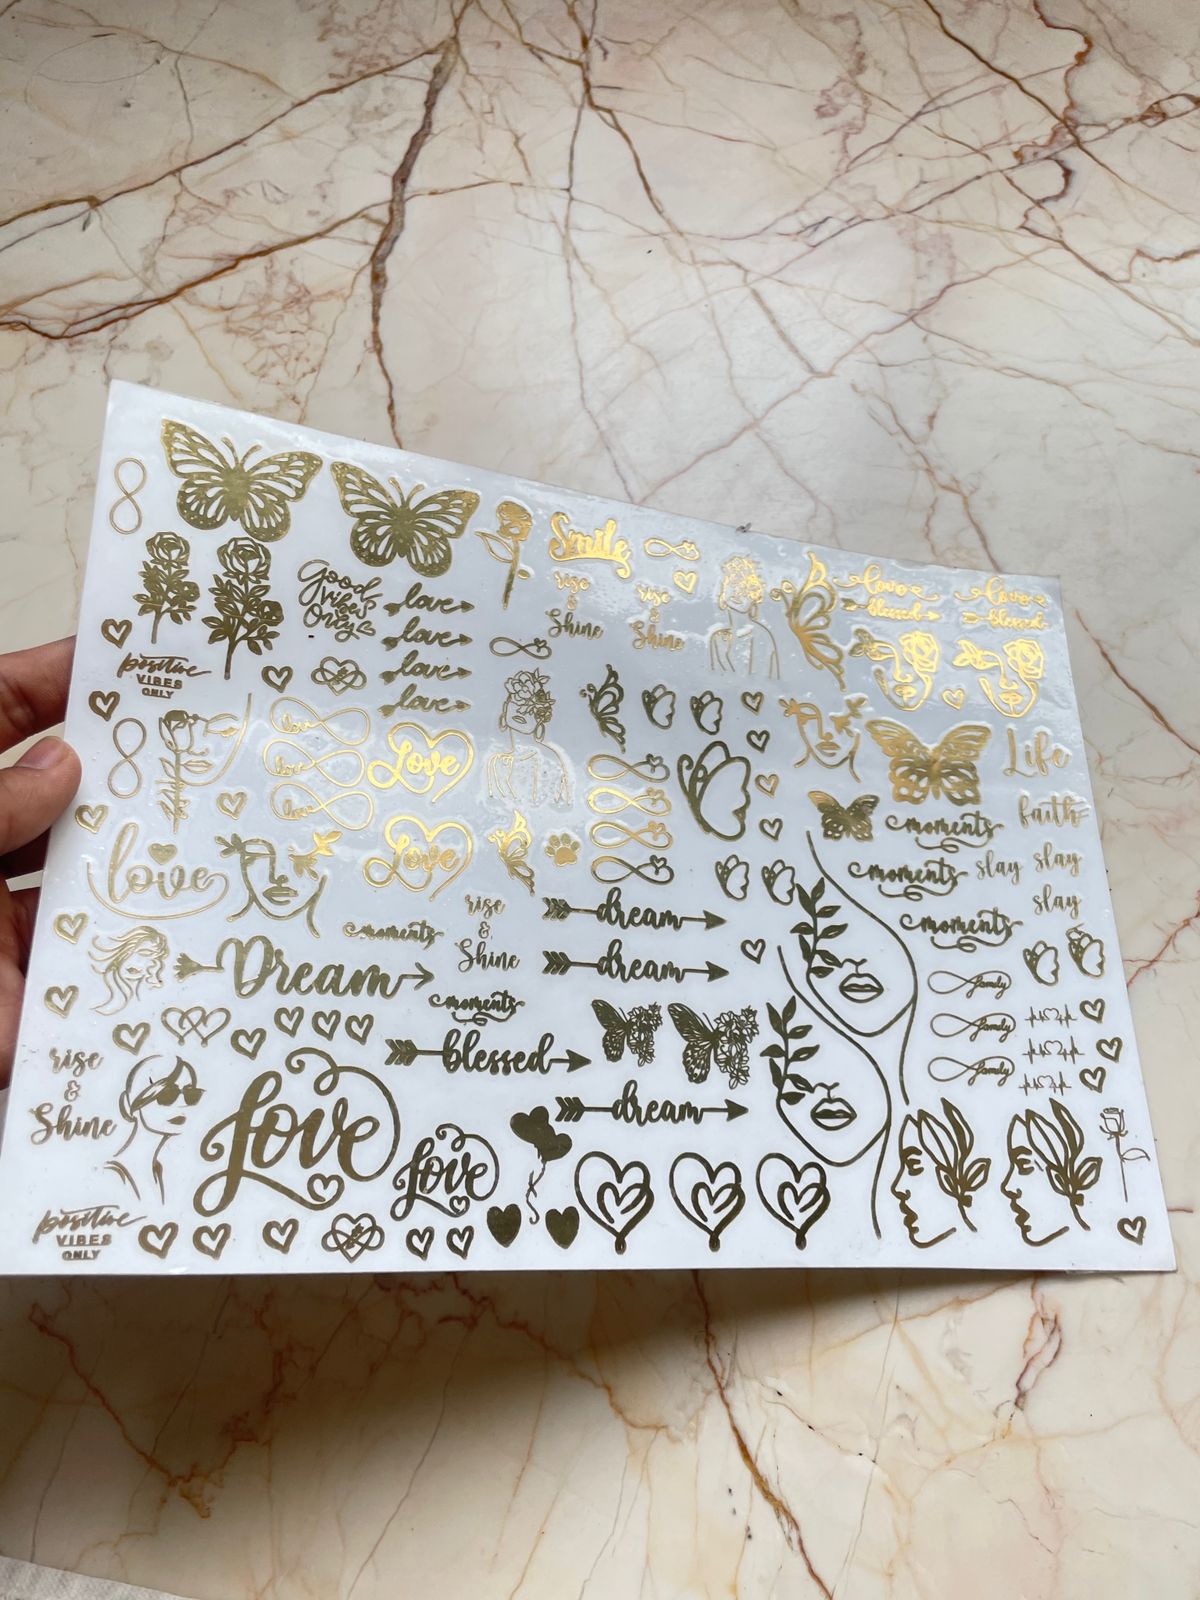 Smile
rise
&
Shine
rise
&
Shine
love
blessed
love
blessed
Good
vibes
Only
love
love
love
love
positive
VIBES
ONLY
love
love
love
Love
Love
Life
faith
moments
moments
moments
slay slay
slay
love
moments
rise
&
Shine
dream
dream
Dream
moments
blessed
dream
family
family
family
rise
&
Shine
Love
Love
positive
VIBES
ONLY